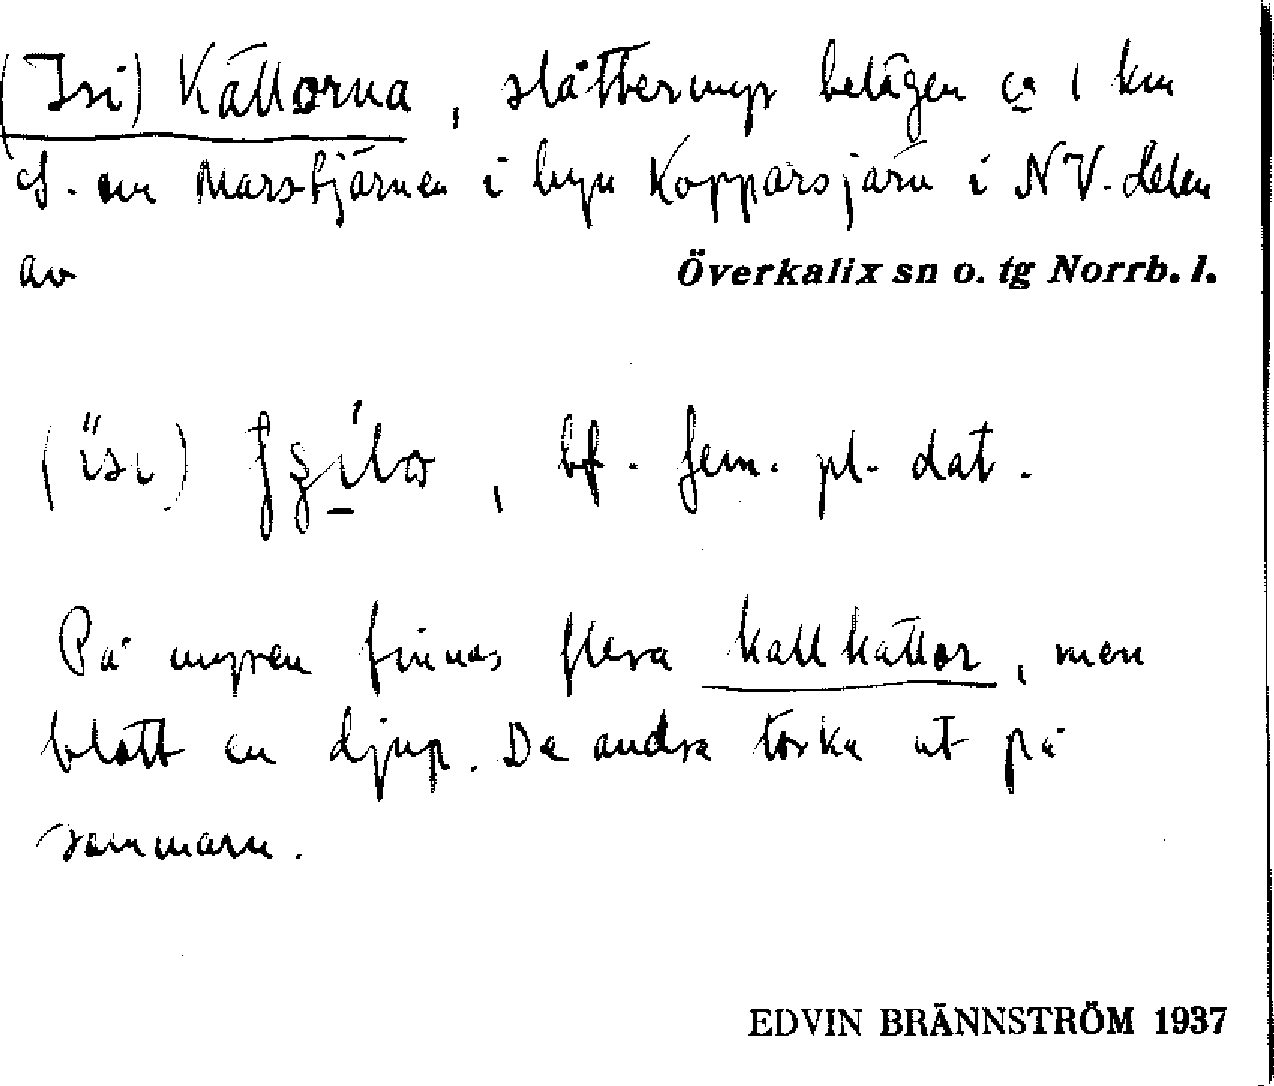 (Isi) Källorna, slåttermyr belägen ca 1 km
S. om Marstjärnen i byn Kopparsjärn i NV. delen
av Överkalix sn o. tg Norrb. l.
(isı) , bf. fem. pl. dat.
På myren finnas flera kallkällor, men
blott en djup. De andra torka ut på
sommarn.
EDVIN BRÄNNSTRÖM 1937